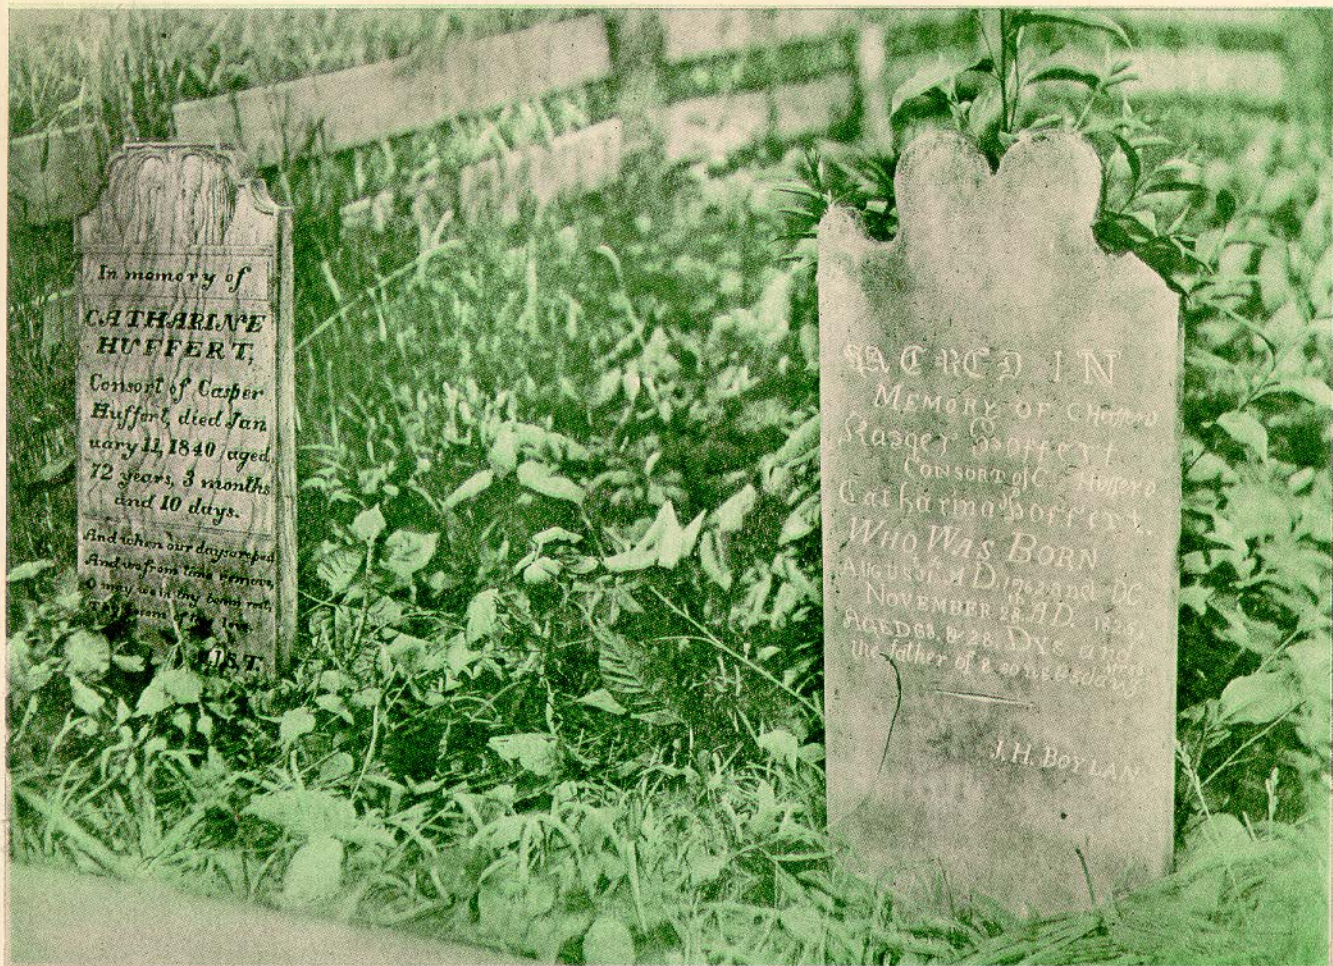 In memory of
CATHARINE
HUFFERT,
Consort of Casper
Huffert, died Jan
uary 11, 1840 aged
72 years, 3 months
and 10 days.
And when our days are past
And we from time remove,
O may we in thy bosom rest,
The bosom of thy love.
SACRED IN
MEMORY OF
Hoffert
CONSORT of C
Catharina Hoffert.
WHO WAS BORN
AUGUST AD and
NOVEMBER 28 AD. 1825
AGED 63. & 28. Dye and
the father of 8 sons &
J.H. BOYLAN